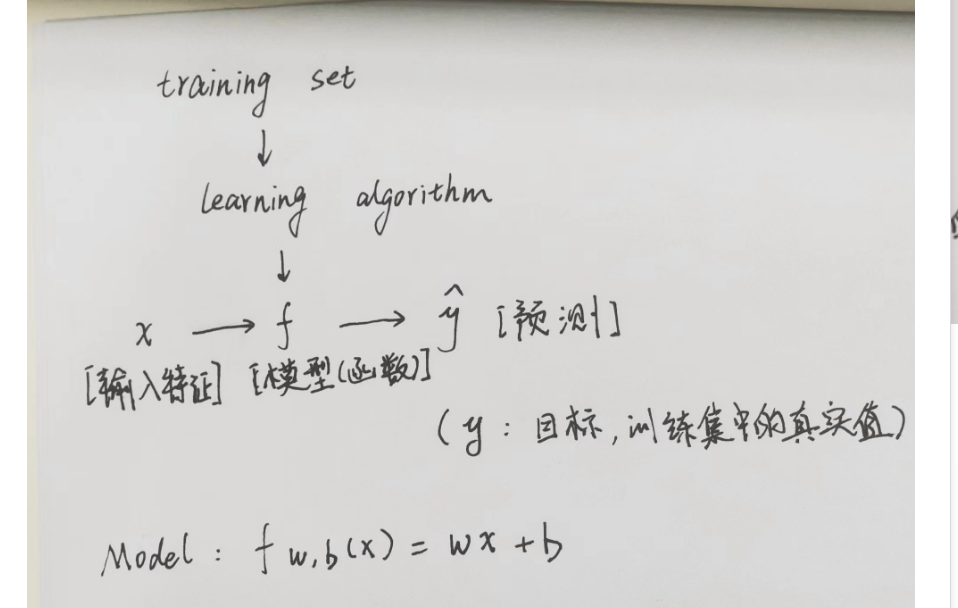 training set
↓
learning algorithm
↓
x → f → ŷ [预测]
[输入特征] [模型(函数)]
(y : 目标,训练集中的真实值)
Model : f w,b(x) = wx + b